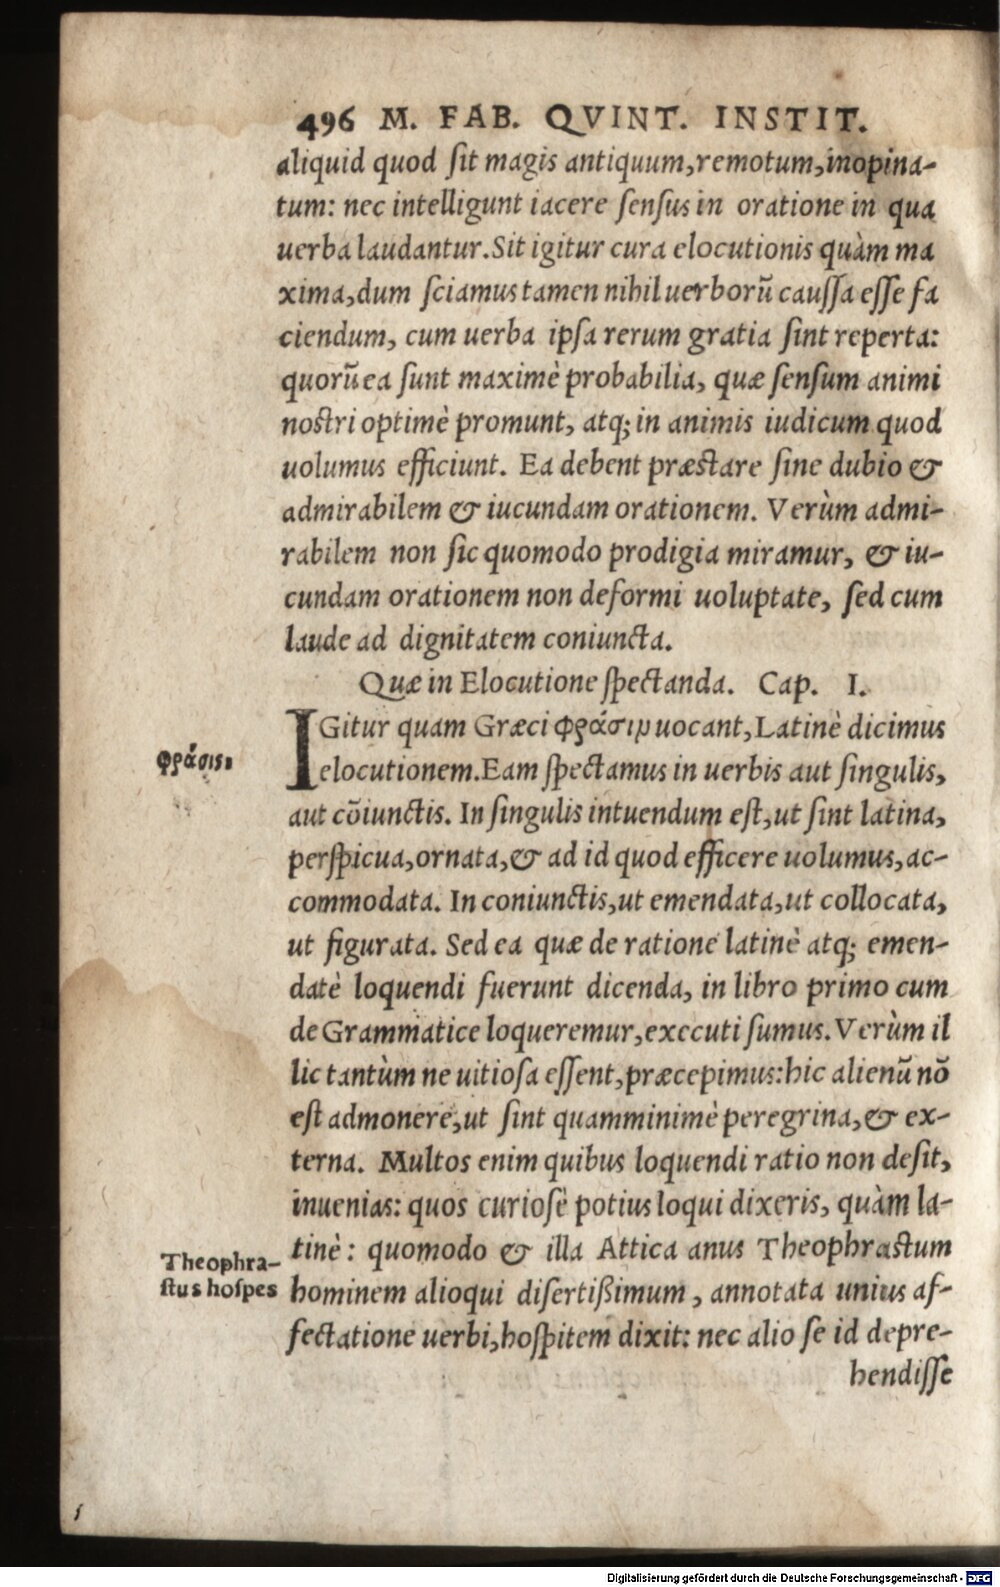 496 M. FAB. QVINT. INSTIT.
aliquid quod ſit magis antiquum,remotum,inopina-
tum: nec intelligunt iacere ſenſus in oratione in qua
uerba laudantur. Sit igitur cura elocutionis quàm ma
xima,dum ſciamus tamen nihil uerborū cauſſa eſſe fa
ciendum, cum uerba ipſa rerum gratia ſint reperta:
quorū ea ſunt maximè probabilia, quæ ſenſum animi
noſtri optimè promunt, atq; in animis iudicum quod
uolumus efficiunt. Ea debent præſtare ſine dubio &
admirabilem & iucundam orationem. Verùm admi-
rabilem non ſic quomodo prodigia miramur, & iu-
cundam orationem non deformi uoluptate, ſed cum
laude ad dignitatem coniuncta.
Quæ in Elocutione ſpectanda. Cap. I.
IGitur quam Græci φράσιν uocant, Latinè dicimus
φράσις.
elocutionem. Eam ſpectamus in uerbis aut ſingulis,
aut cōiunctis. In ſingulis intuendum eſt,ut ſint latina,
perſpicua,ornata,& ad id quod efficere uolumus,ac-
commodata. In coniunctis,ut emendata,ut collocata,
ut figurata. Sed ea quæ de ratione latinè atq; emen-
datè loquendi fuerunt dicenda, in libro primo cum
de Grammatice loqueremur,executi ſumus. Verùm il
lic tantùm ne uitioſa eſſent,præcepimus:hic alienū nō
eſt admonere,ut ſint quamminimè peregrina,& ex-
terna. Multos enim quibus loquendi ratio non deſit,
inuenias: quos curioſè potius loqui dixeris, quàm la-
tinè: quomodo & illa Attica anus Theophraſtum
Theophra-
ſtus hoſpes
hominem alioqui diſertißimum, annotata unius af-
fectatione uerbi,hoſpitem dixit: nec alio ſe id depre-
hendiſſe
Digitalisierung gefördert durch die Deutsche Forschungsgemeinschaft - DFG